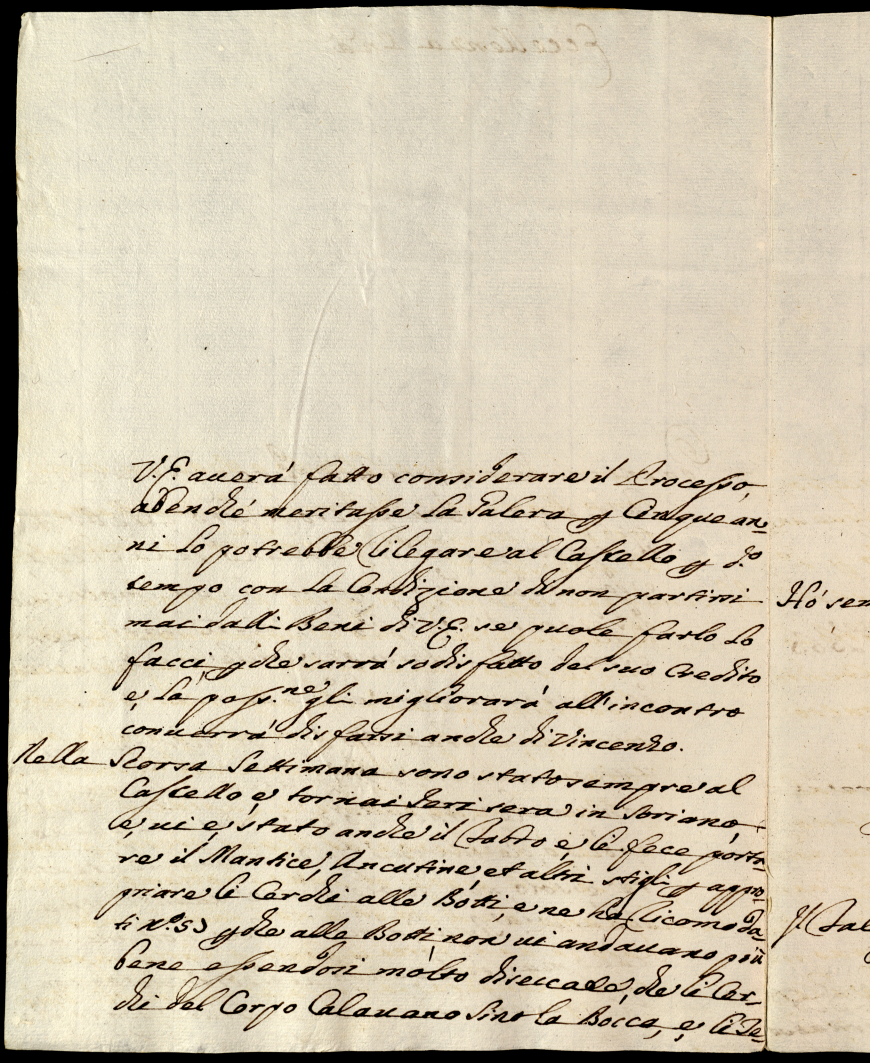 V.E. auerá fatto considerare il Processo,
abenché meritasse la Galera p Cinque an=
ni lo potrebbe rilegare al Castello p d.o
tempo con la Condizione di non partirsi
mai dalli Beni di V.E. se puole farlo lo
facci pche sarrá sodisfatto del suo Credito
e la poss.ne gli migliorará all'incontro
conuerrá disfarsi anche di Vincenzo.
Nella Scorsa Settimana sono stato sempre al
Castello e tornai Ieri sera in Soriano,
e ui é stato anche il fabro, e li fece porta=
re il Mantice, Ancutine et altri stigli p appro=
priare li Cerchi alle Botti, e ne ha ricomoda=
ti n.o 53 pche alle Botti non ui andauano piú
bene essendosi molto diseccate, che li Cer=
chi del Corpo Calauano sino la Bocca, e li Te=
Hó sem